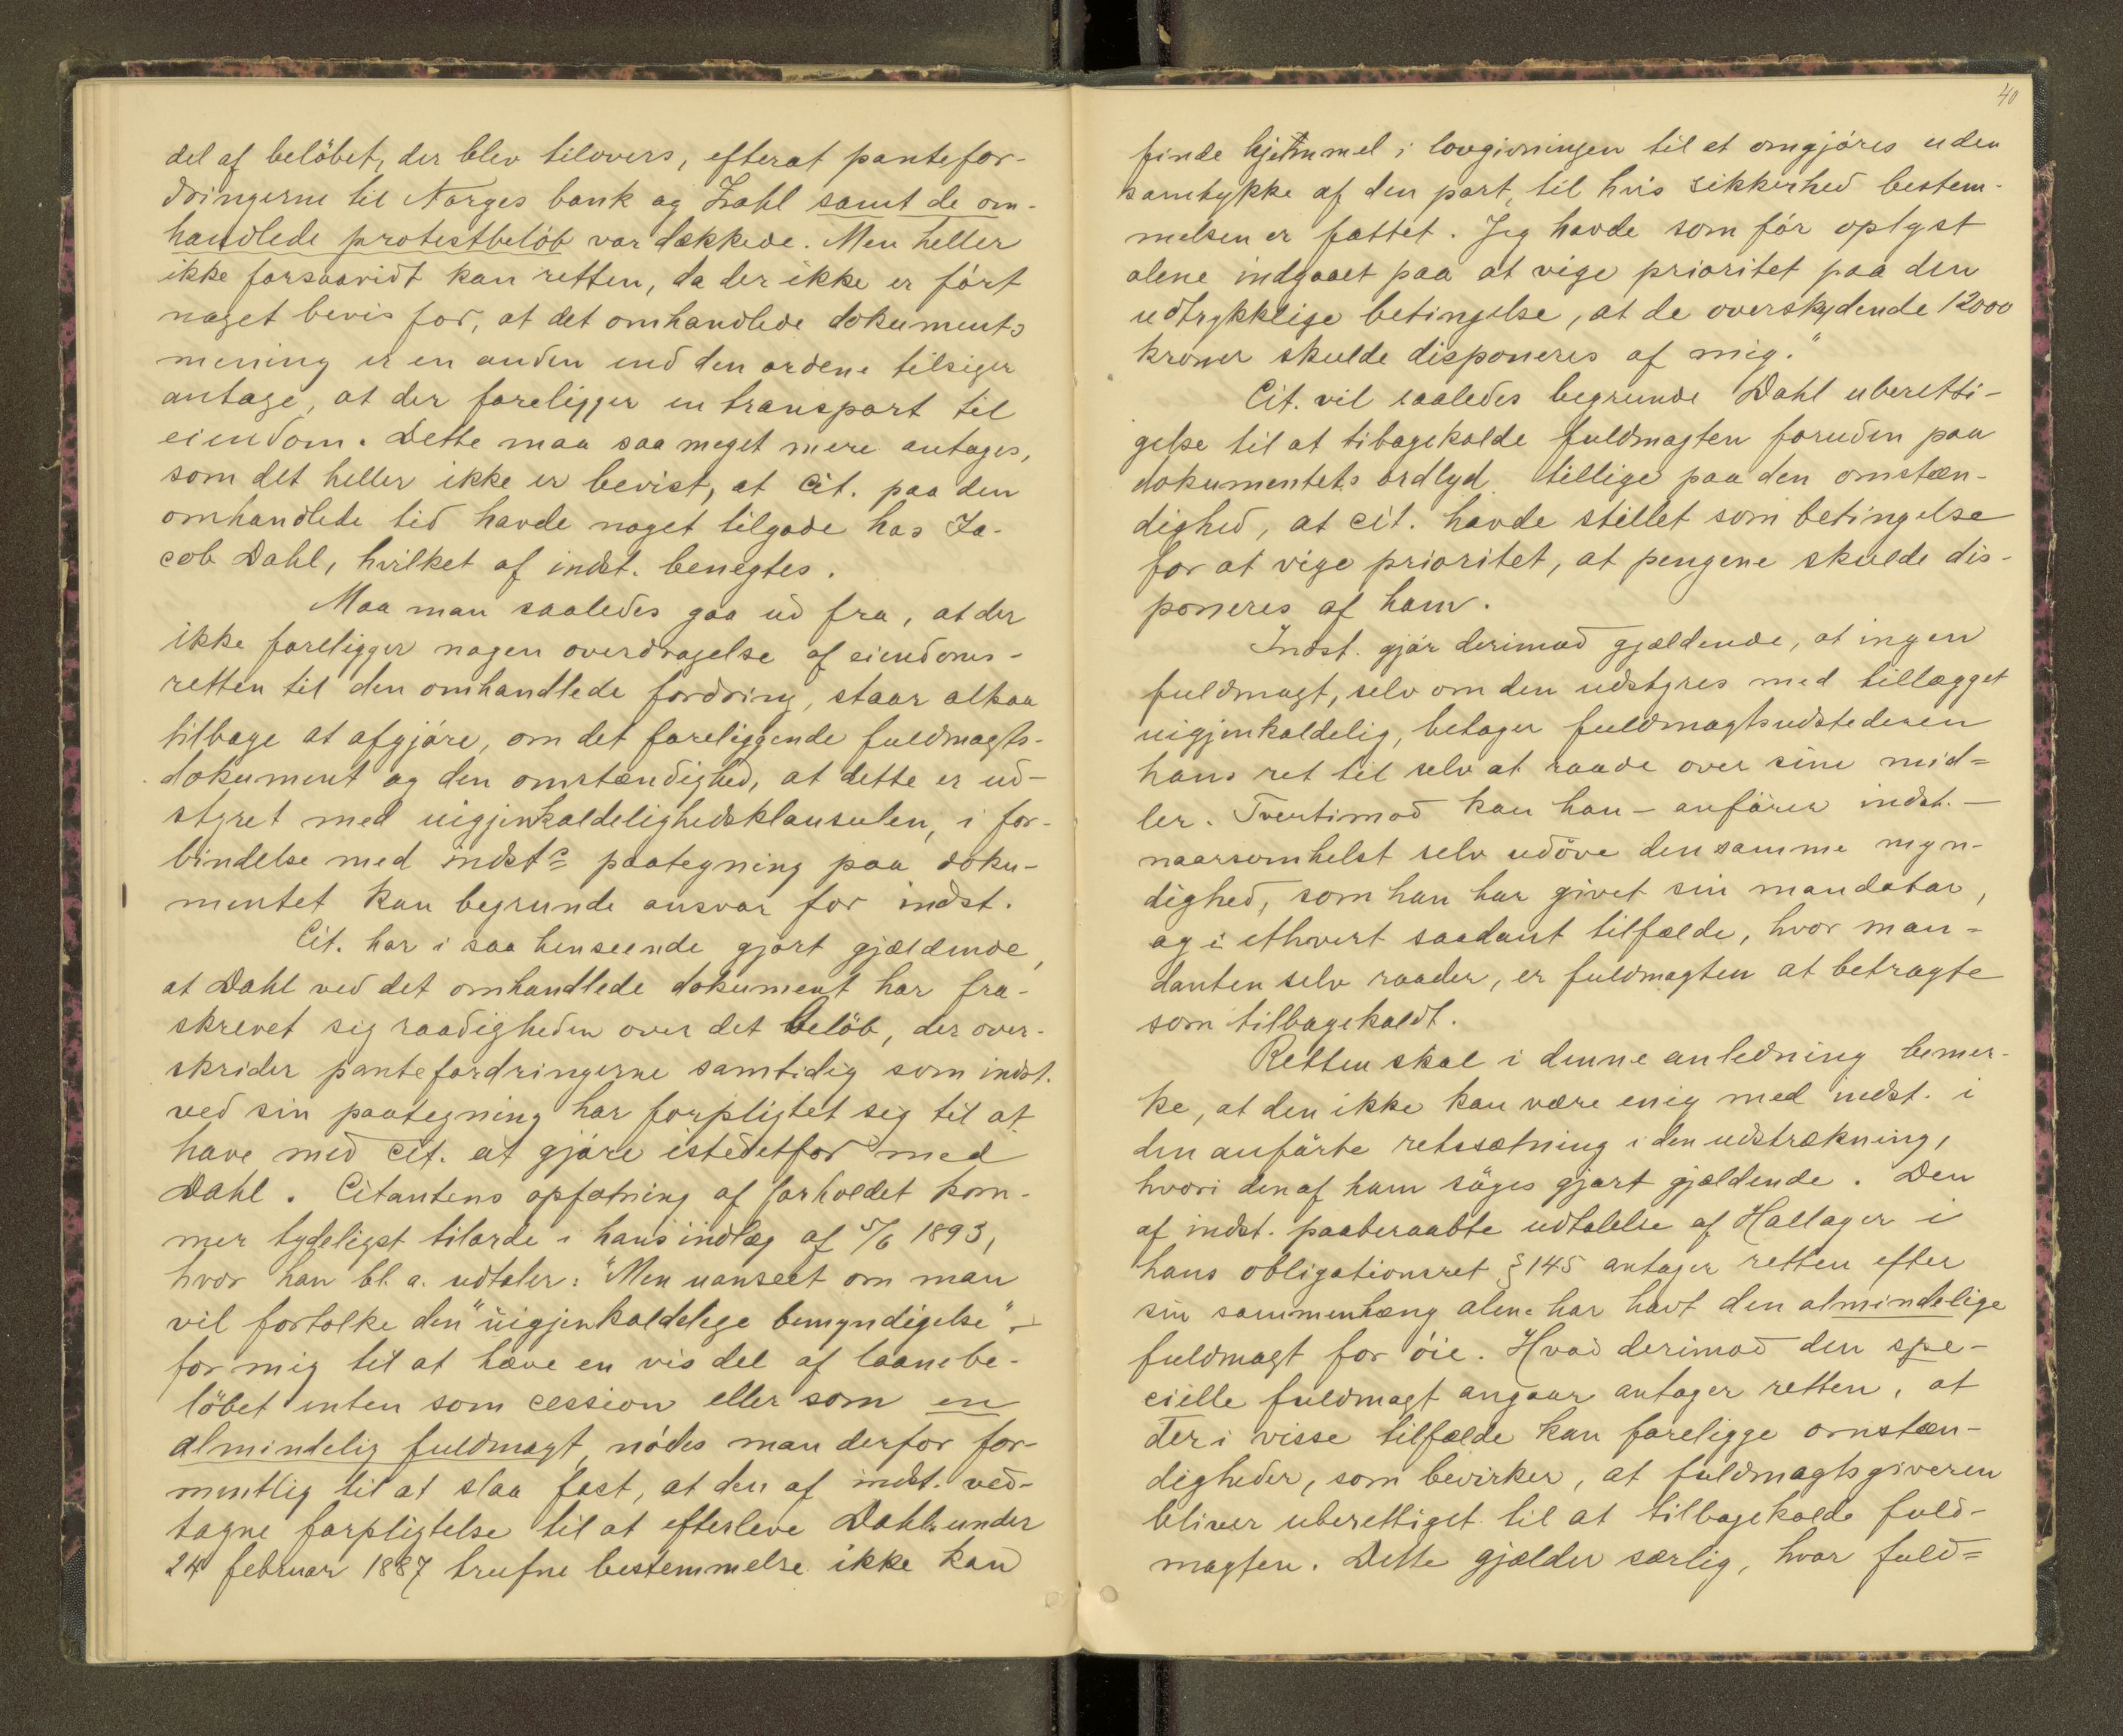 del af belöbet, der blev tilovers, efterat pantefor-
dringerne til Norges bank og Zahl samt de om-
handlede protestbelöb var dækkede. Men heller
ikke forsaavidt kan retten, da der ikke er fört
noget bevis for, at det omhandlede dokuments
mening er en anden end den ordene tilsiger
antage, at der foreligger en transport til
eiendom. Dette maa saa meget mere antages,
som det heller ikke er bevist, at Cit. paa den
omhandlede tid havde noget tilgode hos Ja-
cob Dahl, hvilket af indst. benegtes.
Maa man saaledes gaa ud fra, at der
ikke foreligger nogen overdragelse af eiendoms-
retten til den omhandlede fordring, staar altsaa
tilbage at afgjöre, om det foreliggende fuldmagts-
dokument og den omstændighed, at dette er ud-
styret med uigjenkaldelighedsklausulen, i for-
bindelse med indsts paategning paa doku-
mentet kan begrunde ansvar for indst.
Cit. har i saa henseende gjort gjældende,
at Dahl ved det omhandlede dokument har fra-
skrevet sig raadigheden over det belöb, der over-
skrider pantefordringerne samtidig som indst.
ved sin paategning har forpligtet sig til at
have med cit. at gjöre istedetfor med
Dahl. Citantens opfatning af forholdet kom-
mer tydeligst tilorde i hans indlæg af 5/6 1893,
hvor han bl. a. udtaler: "Men uanseet om man
vil fortolke den "uigjenkaldelige bemyndigelse" -
for mig til at hæve en vis del af laanebe-
löbet enten som cession eller som en
almindelig fuldmagt, nödes man derfor for-
mentlig til at slaa fast, at den af indst. ved-
tagne forpligtelse til at efterleve Dahls under
24 februar 1887 trufne bestemmelse ikke kan
40
finde hjemmel i lovgivningen til at omgjöres uden
samtykke af den part, til hvis sikkerhed bestem-
melsen er fattet. Jeg havde som för oplyst
alene indgaaet paa at vige prioritet paa den
udtrykkelige betingelse, at de overskydende 12000
kroner skulde disponeres af mig."
Cit. vil saaledes begrunde Dahl uberetti-
gelse til at tibagekalde fuldmagten foruden paa
dokumentets ordlyd tillige paa den omstæn-
dighed, at cit. havde stillet som betingelse
for at vige prioritet, at pengene skulde dis-
poneres af ham.
Indst. gjör derimod gjældende, at ingen
fuldmagt, selv om den udstyres med tillægget
uigjenkaldelig, betager fuldmagtsudstederen
hans ret til selv at raade over sine mid-
ler. Tvertimod kan han - anförer indst. -
naarsomhelst selv udöve den samme myn-
dighed, som han har givet sin mandatar,
og i ethvert saadant tilfælde, hvor man-
danten selv raader, er fuldmagten at betragte
som tilbagekaldt.
Retten skal i denne anledning bemer-
ke, at den ikke kan være enig med indst. i
den anförte retssætning i den udstrækning,
hvori den af ham söges gjort gjældende. Den
af indst. paaberaabte udtalelse af Hallager i
hans obligationsret § 145 antager retten efter
sin sammenhæng alene har havt den almindelige
fuldmagt for öie. Hvad derimod den spe-
cielle fuldmagt angaar antager retten, at
der i visse tilfælde kan foreligge omstæn-
digheder, som bevirker, at fuldmagtsgiveren
bliver uberettiget til at tilbagekalde fuld-
magten. Dette gjælder særlig, hvor fuld-